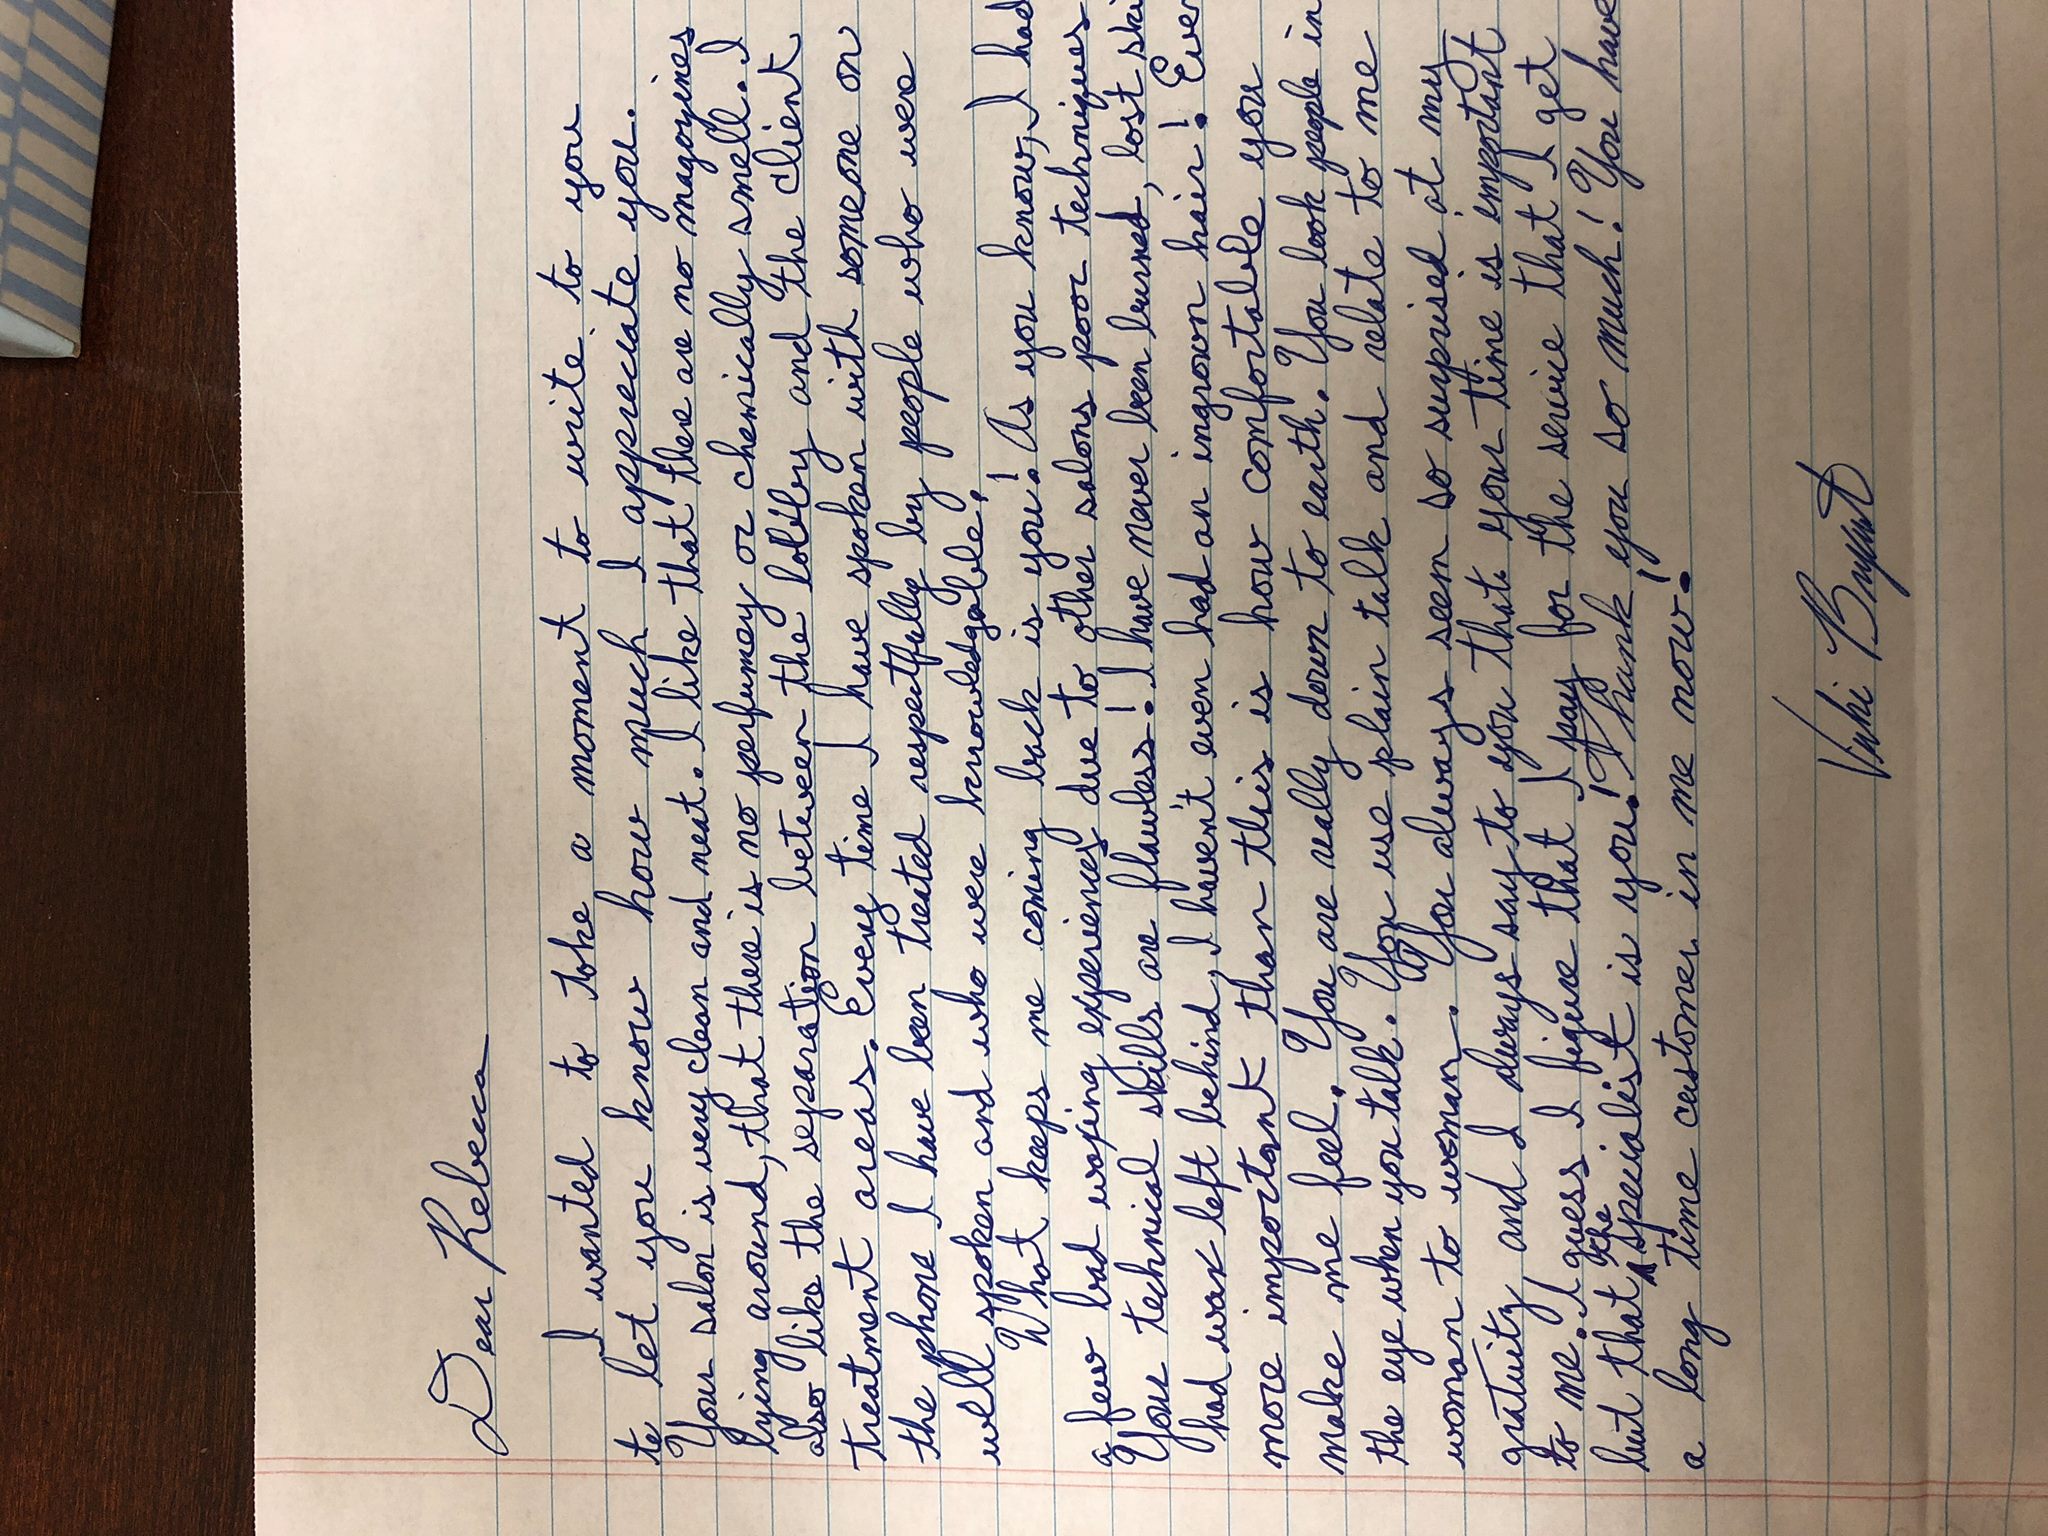 Dear Rebecca
I wanted to take a moment to write to you
to let you know how much I appreciate you.
Your salon is very clean and neat. I like that there are no magazines
lying around, that there is no perfumey or chemically smell. I
also like the separation between the lobby and the client
treatment areas. Every time I have spoken with someone on
the phone I have been treated respectfully by people who were
well spoken and who were knowledgable!
What keeps me coming back is you! As you know, I had
a few bad waxing experiences due to other salons poor techniques
Your technical skills are flawless! I have never been burned, lost skin
had wax left behind, I haven't even had an ingrown hair! Even
more important than this is how comfortable you
make me feel. You are really down to earth. You look people in
the eye when you talk. You use plain talk and relate to me
woman to woman. You always seem so surprised at my
gratuity and I always say to you that your time is important
to me. I guess I figure that I pay for the service that I get
but that the specialist is you! Thank you so much! You have
a long time customer in me now!
Vicki Bryant